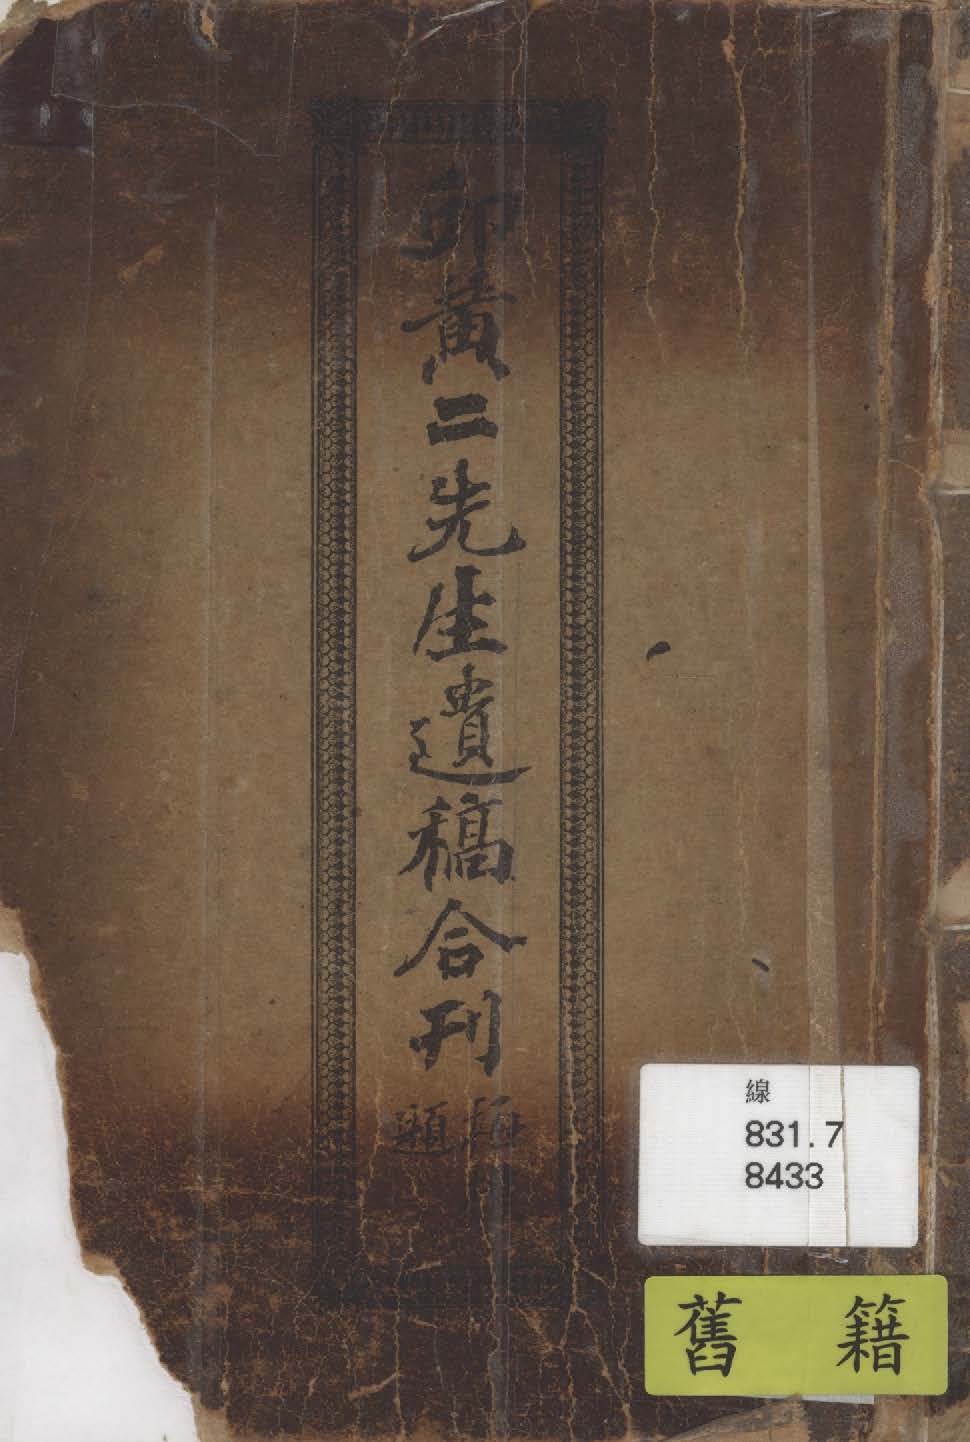 邱黃二先生遺稿合刊
題
線
831.7
8433
舊籍